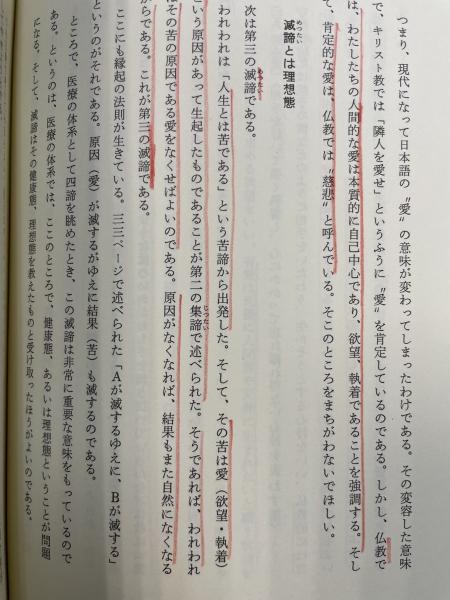 つまり、現代になって日本語の〝愛〟の意味が変わってしまったわけである。その変容した意味
で、キリスト教では「隣人を愛せ」というふうに〝愛〟を肯定しているのである。しかし、仏教で
は、わたしたちの人間的な愛は本質的に自己中心であり、欲望、執着であることを強調する。そし
て、肯定的な愛は、仏教では〝慈悲〟と呼んでいる。そこのところをまちがわないでほしい。
滅諦とは理想態
めったい
次は第三の滅諦である。
めったい
われわれは「人生とは苦である」という苦諦から出発した。そして、その苦は愛(欲望・執着)
いう原因があって生起したものであることが第二の集諦で述べられた。そうであれば、われわれ
じったい
はその苦の原因である愛をなくせばよいのである。原因がなくなれば、結果もまた自然になくなる
からである。これが第三の滅諦である。
ここにも縁起の法則が生きている。三三ページで述べられた「Aが滅するゆえに、Bが滅する」
というのがそれである。原因(愛)が滅するがゆえに結果(苦)も滅するのである。
ところで、医療の体系として四諦を眺めたとき、この滅諦は非常に重要な意味をもっているので
ある。というのは、医療の体系では、ここのところで、健康態、あるいは理想態ということが問題
になる。そして、滅諦はその健康態、理想態を教えたものと受け取ったほうがよいのである。